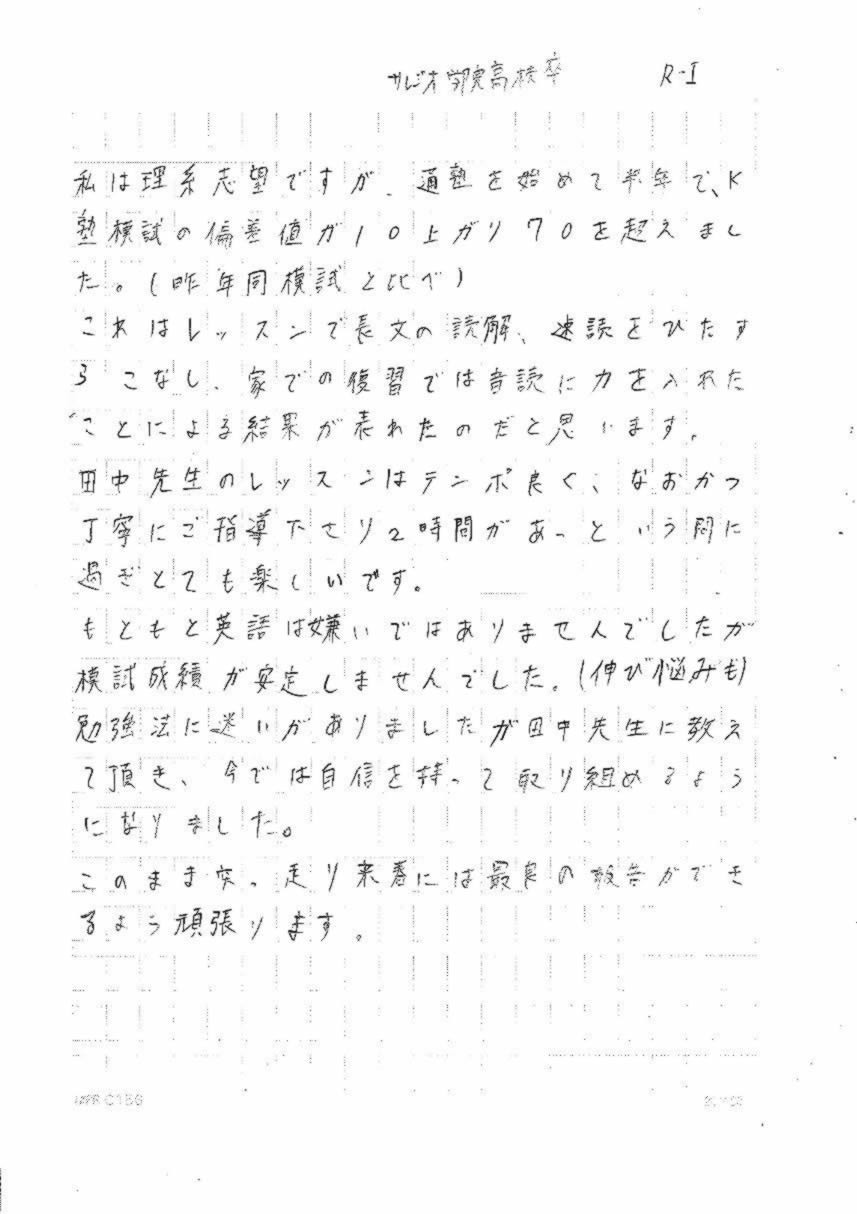 サレジオ学院高校卒 R-I
私は理系志望ですが、通塾を始めて半年で、K
塾模試の偏差値が10上がり70を超えまし
た。(昨年同模試と比べ)
これはレッスンで長文の読解、速読をひたす
らこなし、家での復習では音読に力を入れた
ことによる結果が表れたのだと思います。
田中先生のレッスンはテンポ良く、なおかつ
丁寧にご指導下さり2時間があっという間に
過ぎとても楽しいです。
もともと英語は嫌いではありませんでしたが
模試成績が安定しませんでした。(伸び悩みも)
勉強法に迷いがありましたが田中先生に教え
て頂き、今では自信を持って取り組めるよう
になりました。
このまま突っ走り来春には最良の報告ができ
るよう頑張ります。